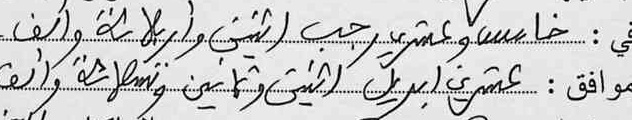 في : خامس وعشرين رجب اثنين وأربلاثة وألف
موافق : عشرين ابريل اثنين وثمانين وتسعلاثة وألف